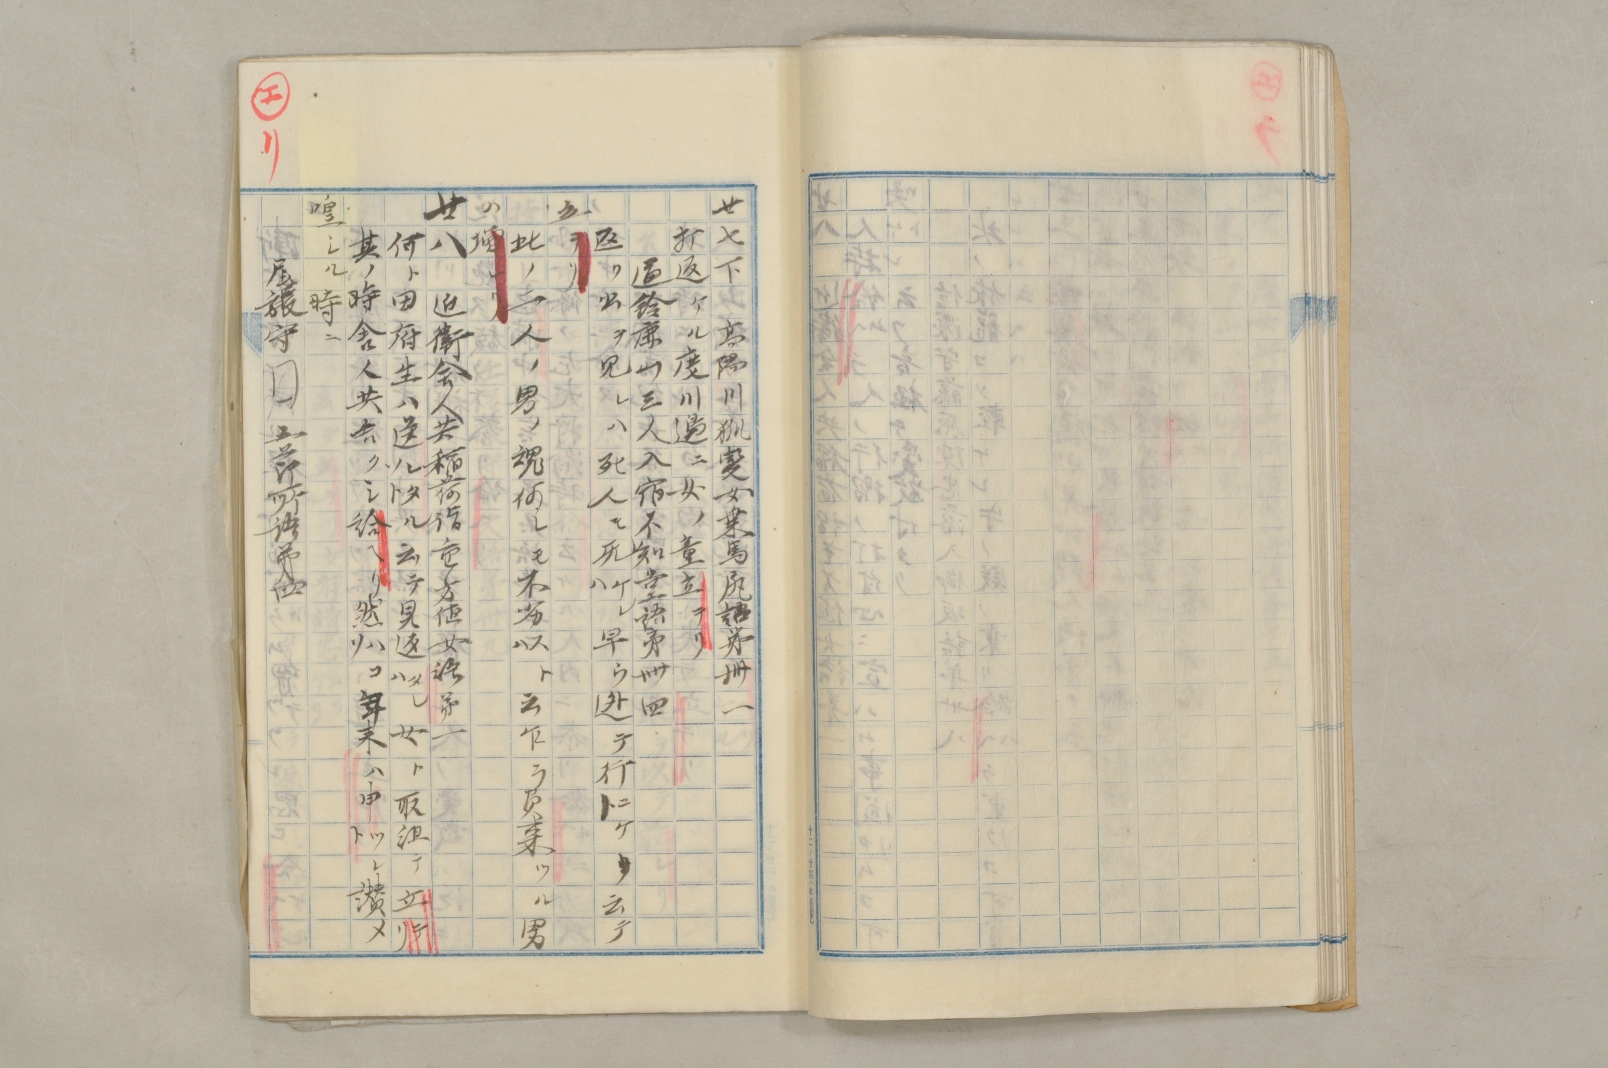 ㋓
リ
廿七下 高陽川狐変女乗馬尻語第卌一
打返ケル度川邊ニ女ノ童立テリ
通鈴鹿山三人入宿不知堂語第卌四
返リ出ヲ見レハ死人モ死ハケレ早ウ逃テ行ニケト云テ
立テリ
此ノ三人ノ男ノ魂何レモ不劣以ト云乍ラ負来ツル男
ハ増レリ
廿八 近衛舎人共稲荷詣重方値女語第一
何ト田府生ハ送ルトタル云テ見返ハタレ女ト取組テ立テリ
其ノ時舎人共吉クシ給ヘリ然ハコ年来ハ由トツレ讃メ
喤シル時ニ
尾張守 五節所語第四